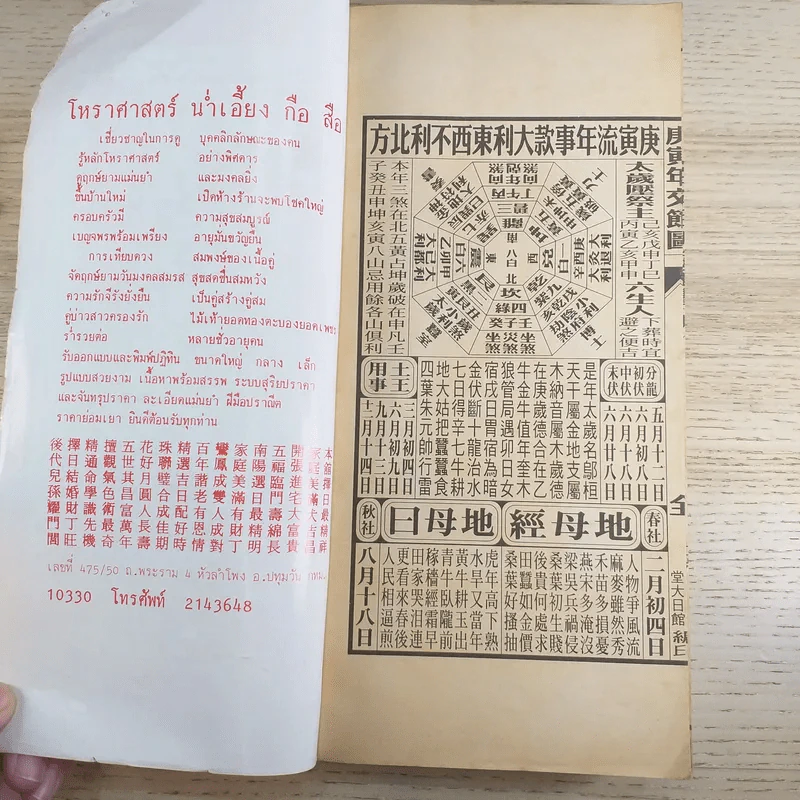 โหราศาสตร์ น่ำเอี้ยง กือ สือ
เชี่ยวชาญในการดู บุคคลิกลักษณะของคน
รู้หลักโหราศาสตร์ อย่างพิศดาร
ดูฤกษ์ยามแม่นยำ และมงคลยิ่ง
ขึ้นบ้านใหม่ เปิดห้างร้านจะพบโชคใหญ่
ครอบครัวมี ความสุขสมบูรณ์
เบญจพรพร้อมเพรียง อายุมั่นขวัญยืน
การเทียบดวง สมพงษ์ของเนื้อคู่
จัดฤกษ์ยามวันมงคลสมรส สุขสดชื่นสมหวัง
ความรักจีรังยั่งยืน เป็นคู่สร้างคู่สม
คู่บ่าวสาวครองรัก ไม้เท้ายอดทองตะบองยอดเพชร
ร่ำรวยต่อ หลายชั่วอายุคน
รับออกแบบและพิมพ์ปฏิทิน ขนาดใหญ่ กลาง เล็ก
รูปแบบสวยงาม เนื้อหาพร้อมสรรพ ระบบสุริยปราคา
และจันทรปราคา ละเอียดแม่นยำ ฝีมือปราณีต
ราคาย่อมเยา ยินดีต้อนรับทุกท่าน
開張進宅大富貴
五福臨門壽綿長
南陽選日最精明
家庭美滿有財丁
鸞鳳成雙人成對
百年諧老有恩情
精選吉日配好時
珠聯璧合成佳期
花好月圓人長壽
五世其昌富萬年
擅觀氣色術最奇
精通命學識先機
擇日結婚財丁旺
後代兒孫耀門閭
เลขที่ 475/50 ถ.พระราม 4 หัวลำโพง อ.ปทุมวัน
10330 โทรศัพท์ 2143648
庚寅年交節圖
庚寅流年事款大利東西不利北方
太歲壓祭主
己亥戊申丁巳
丙寅乙亥甲申
六生人
下葬時宜
避之便吉
本年三煞在北五黃占坤歲破在申凡壬
子癸丑申坤亥寅八山忌用餘各山俱利
分龍 五月十二日
初伏 六月初八日
中伏 六月十八日
末伏 六月廿八日
是年太歲名鄔桓
天干屬金地支屬
木納音屬木歲德
在庚歲德合在乙
牛金牛值年奎木
狼管局遇卯日女
宿戌日胃宿為暗
金伏斷十龍治水
七日得辛七牛耕
地大姑把蠶蠶食
四葉朱元帥行雷
土王用事
三月初四日
六月初九日
九月十三日
十二月十四日
春社
二月初四日
地母經
地母曰
人物爭風流
麻麥雖然秀
禾苗多損憂
燕宋多淹沒
梁吳兵禍侵
桑葉初生賤
後貴何處求
田蠶如金價
桑葉好搔抽
虎年高下熟
水旱又當年
黃牛耕玉出
青牛臥隴前
稼穡經霜早
田家哭泪連
更看來春後
人民相逼煎
秋社
八月十八日